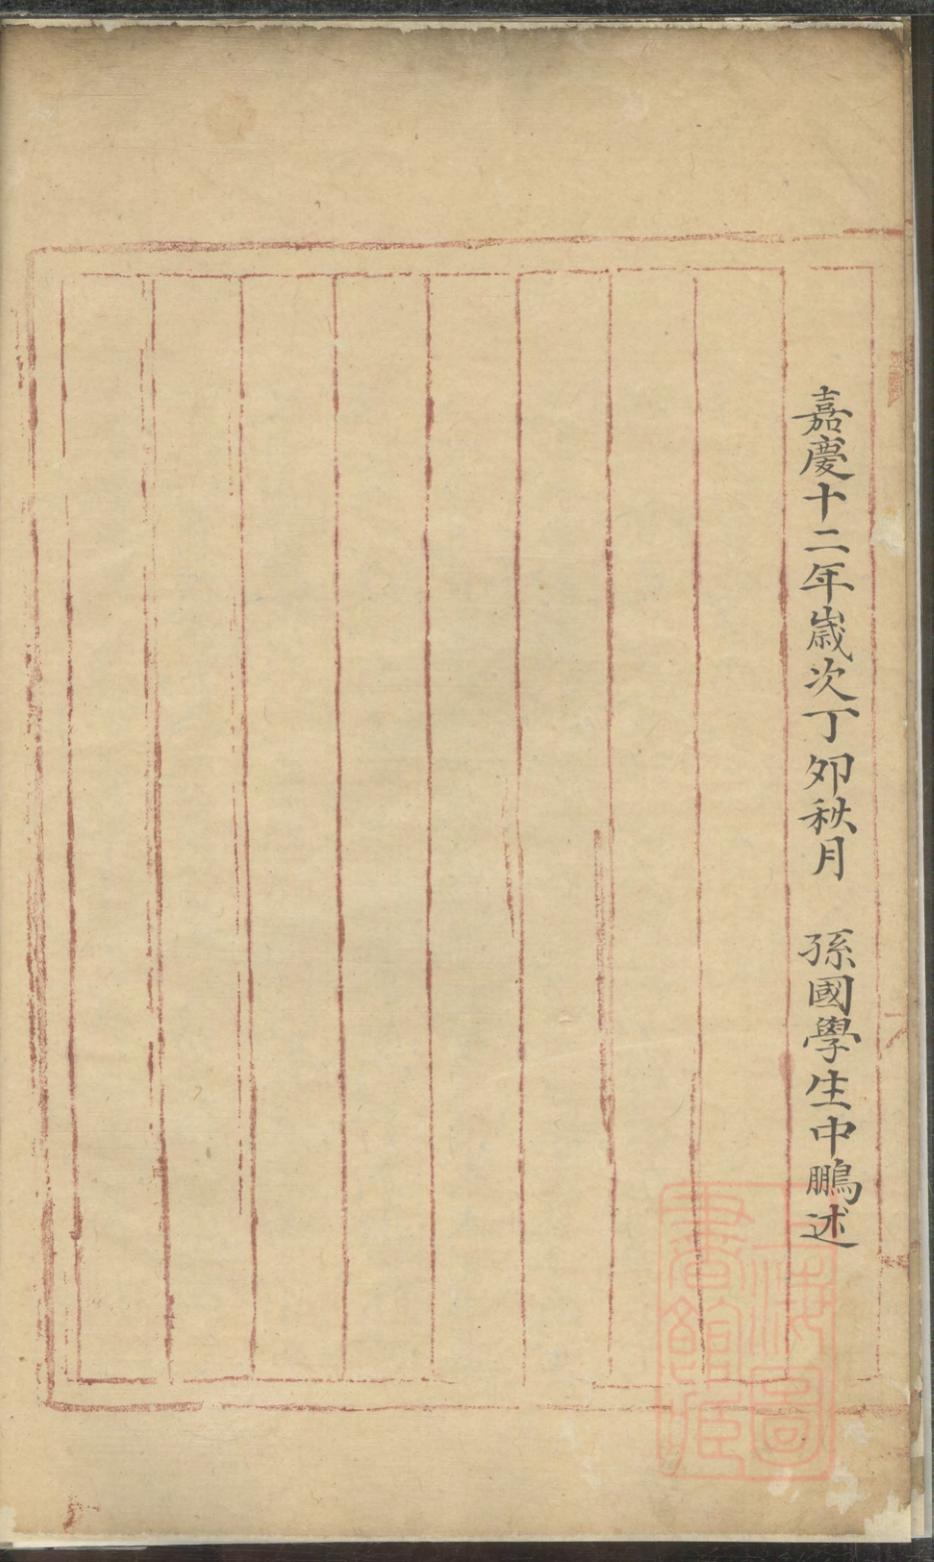 嘉慶十二年歲次丁夘秋月　孫國學生中鵬述
上海圖
書館藏